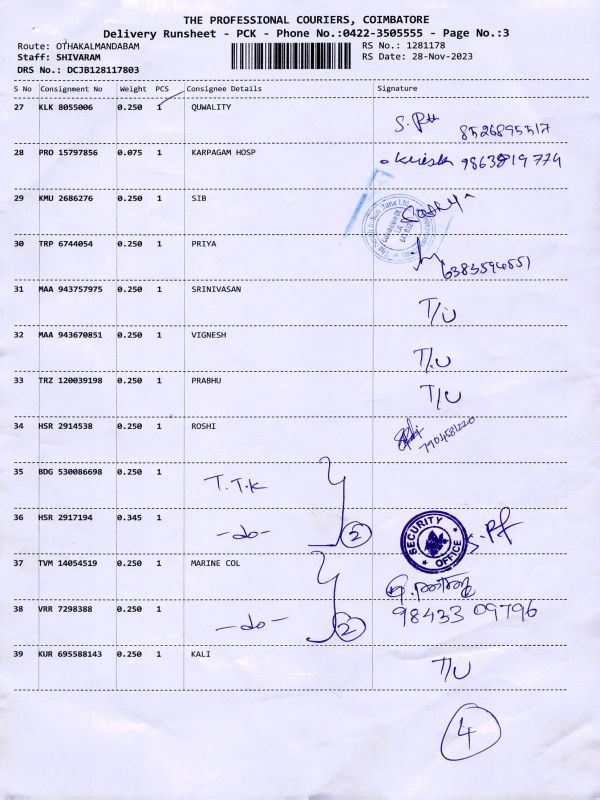 THE PROFESSIONAL COURIERS, COIMBATORE
Delivery Runsheet - PCK - Phone No.:0422-3505555 - Page No.:3
Route: OTHAKALMANDABAM RS No.: 1281178
Staff: SHIVARAM RS Date: 28-Nov-2023
DRS No.: DCJB128117803
S No Consignment No Weight PCS Consignee Details Signature
27 KLK 8055006 0.250 1 QUWALITY
8526895517
28 PRO 15797856 0.075 1 KARPAGAM HOSP
9863819774
29 KMU 2686276 0.250 1 SIB
30 TRP 6744054 0.250 1 PRIYA
6383594551
31 MAA 943757975 0.250 1 SRINIVASAN
T/U
32 MAA 943670851 0.250 1 VIGNESH
T/U
33 TRZ 120039198 0.250 1 PRABHU
T/U
34 HSR 2914538 0.250 1 ROSHI
7904581220
35 BDG 530086698 0.250 1
T.T.K
36 HSR 2917194 0.345 1
-do- 2
SECURITY OFFICE
37 TVM 14054519 0.250 1 MARINE COL
38 VRR 7298388 0.250 1
-do- 2
98433 09796
39 KUR 695588143 0.250 1 KALI
T/U
4